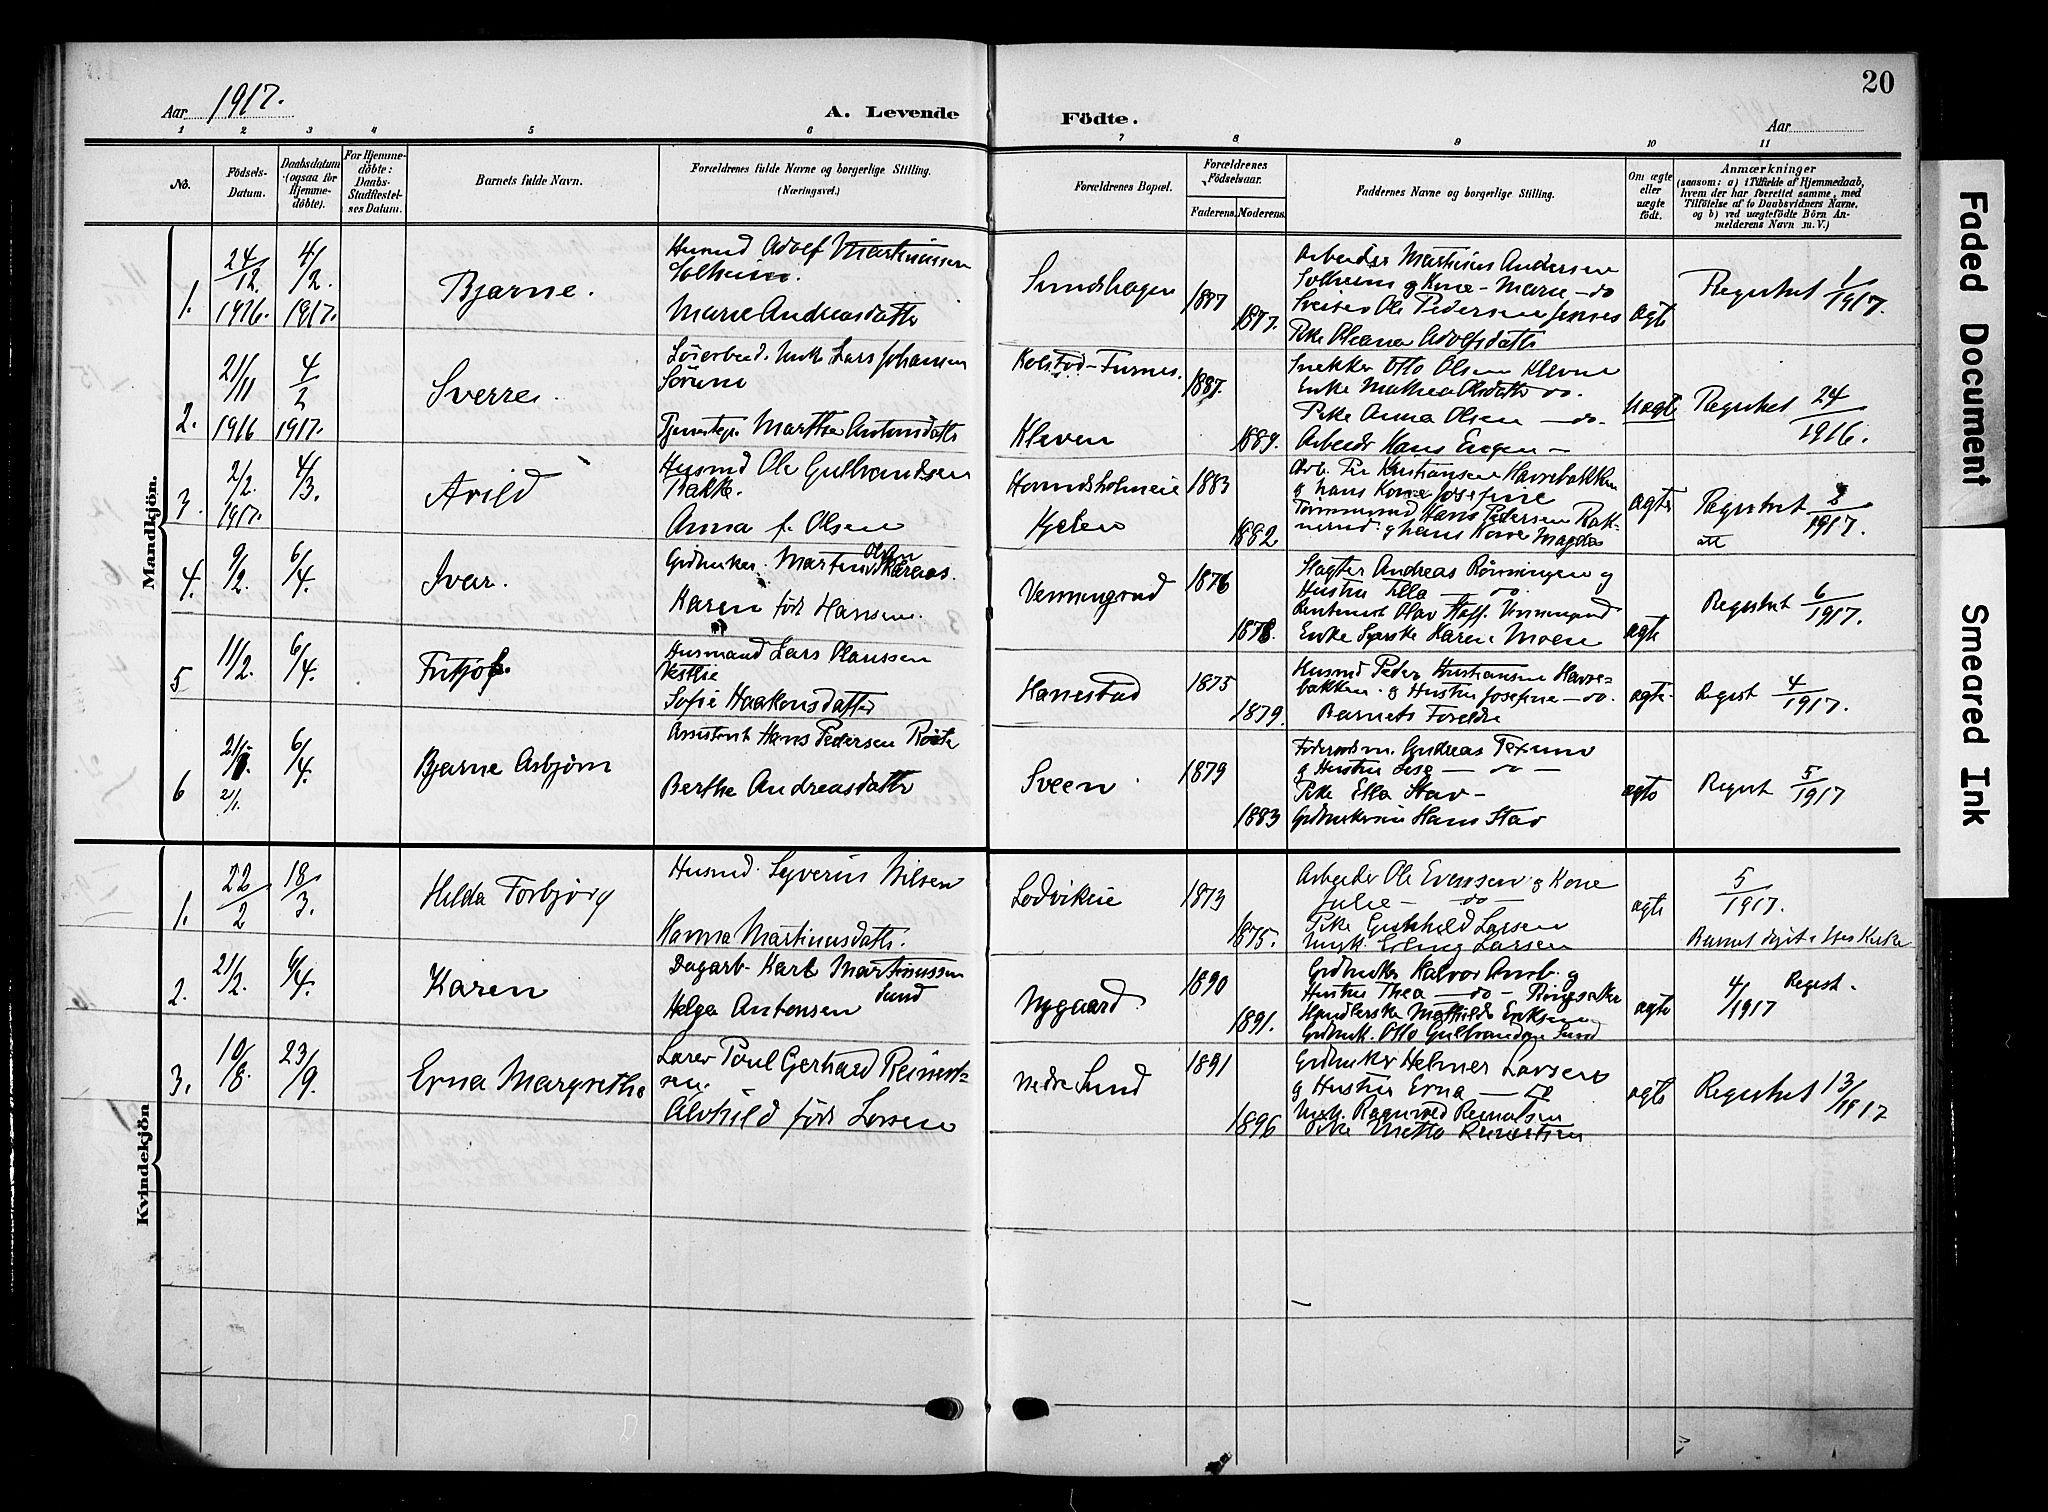 20
Aar 1917.
A. Levende Födte.
Aar
1 2 3 4 5 6 7 8 9 10 11
No.
Födsels-Datum.
Daabsdatum (ogsaa for Hjemmedöbte).
For Hjemmedöbte: Daabs-Stadfæstelses Datum.
Barnets fulde Navn.
Forældrenes fulde Navne og borgerlige Stilling. (Næringsvei.)
Forældrenes Bopæl.
Forældrenes Födselsaar.
Faderens. Moderens.
Faddernes Navne og borgerlige Stilling.
Om ægte eller uægte födt.
Anmærkninger
(saasom: a) i Tilfælde af Hjemmedaab, hvem der har forrettet samme, med Tilföielse af to Daabsvidners Navne, og b) ved uægtefödte Börn Anmelderens Navn m. V.)
Mandkjön.
1. 24/12. 1916. 4/2. 1917. Bjarne.
Husmd Adolf Martinussen
Solheim.
Marie Andreasdattr
Sundshagen 1877 1877.
Arbeider Martinus Andersen
Solheim og Kone Marie — do
Sveiser Ole Pedersen
Pike Oleana Adolfsdattr
ægte
Registret 1/1917.
2. 21/11 1916 4/2 1917. Sverre.
Lars Johansen
Martha Antonsdattr
Kolstad - Furnes. 1887.
Kleven 1889.
Snekker Otto Olsen Kleven
Enke Mathea Olsdattr do.
Pike Anna Olsen — do.
Arbeidr Hans Engen —
uægte
Registret 24/1916.
3. 2/2. 1917. 4/3. Arild
Husmd Ole Gulbrandsen
Bakke.
Anna f. Olsen
1883 1882
Arb. Per Kristiansen Havrebakken
og hans Kone Josefine
Tömmermd Hans Pedersen
og hans Kone Magda
ægte
Registret 2/1917.
att
4. 9/2. 6/4. Ivar.
Grdbruker. Martin Olsen
Karen födt Hansen.
Venningrud 1876 1878.
Slagter Andreas Rönningen og
Hustru Tilla — do.
Enke Syerske Karen Moen
ægte
Registret 6/1917.
5 11/2. 6/4. Fritjof.
Husmand Lars Claussen
Vestlie
Sofie Haakonsdatter
Hanestad 1875 1879.
Husmd Peder Kristiansen Havrebakken. og Hustru Josefine — do.
Barnets Foreldre
ægte.
Regist 4/1917.
6 21/1. 21/1. 6/4. Bjarne Asbjörn
Assistent Hans Pedersen
Berthe Andreasdattr
Sveen 1879 1883
Andreas
og Hustru Lise — do —
Pike Ella Stav —
Hans Stav
ægte
Regist 5/1917
Kvindekjön
1. 22/2 18/3. Hilda Torbjörg
Husmd. Syverin Nilsen
Hanna Martinusdattr.
Lodvikeie 1873 1875.
Arbeider Ole Evensen og Kone
Julie — do —
Pike Gunhild Larsen
Ungk. Erling Larsen
ægte
5/1917.
Barnet döpt i Kirke
2. 21/2. 6/4. Karen
Dagarb. Karl Martinussen
Sund
Helga Antonsen
Nygaard 1890 1891.
Grdbruker Halvor Amb. og
Hustru Thea — do — Ringsaker
Handlerske Mathilde Eriksen
Grdbruk. Otto Gulbrandsen Sund
ægte
4/1917 Regist.
3. 10/8. 23/9. Erna Margrethe
Lærer Poul Gerhard Reinertsen.
Alvhild födt Larsen
Nedre Sund 1891 1896
Grdbruker Helmer Larsen
og Hustru Erna — do
Ungk. Ragnvald Reinertsen
Pike Metta Reinertsen
ægte
Registret 13/1917
Faded Document
Smeared Ink